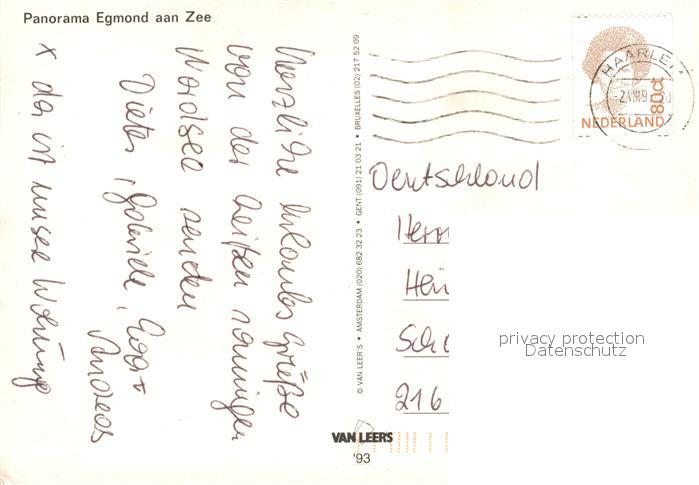 Panorama Egmond aan Zee
Herzliche Urlaubs Grüße
von der heißen sonnigen
Nordsee senden
Dieter, Gabriele,
Andreas
x da ist unsere Wohnung
© VAN LEER'S • AMSTERDAM (020) 682 32 23 • GENT (091) 21 03 21 • BRUXELLES (02) 217 52 09
HAARLEM
80ct
NEDERLAND
Deutschland
Herr
Hei
Sch
216
privacy protection
Datenschutz
VAN LEER'S
'93